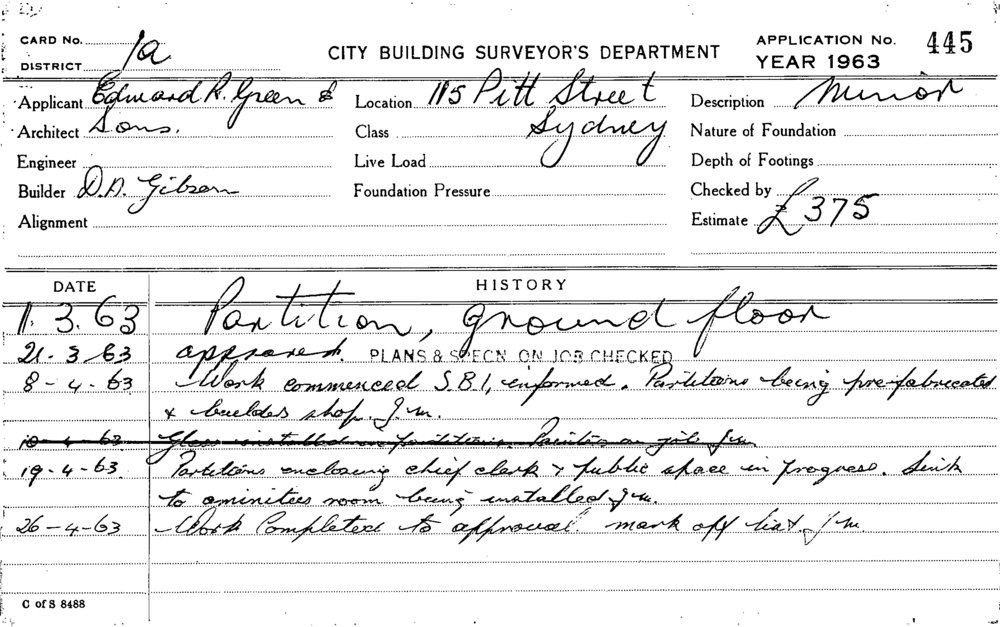 CARD No.
DISTRICT 1a
CITY BUILDING SURVEYOR'S DEPARTMENT
APPLICATION No. 445
YEAR 1963
Applicant Edward R. Green &
Architect Sons.
Engineer
Builder D.A. Gibson
Alignment
Location 115 Pitt Street
Class Sydney
Live Load
Foundation Pressure
Description Minor
Nature of Foundation
Depth of Footings
Checked by
Estimate £375
DATE HISTORY
1.3.63 Partition, ground floor
21-3-63 approved. PLANS & SPECN ON JOB CHECKED
8-4-63 Work commenced S.B.I, informed. Partitions being pre-fabricated
& builders shop. J.M.
10-4-63 Glass installed in partitions. Painters on job J.M.
19-4-63 Partitions enclosing chief clerk & public space in progress. Sink
to aminitees room being installed J.M.
26-4-63 Work Completed to approval. mark off list. J.M.
C of S 8488